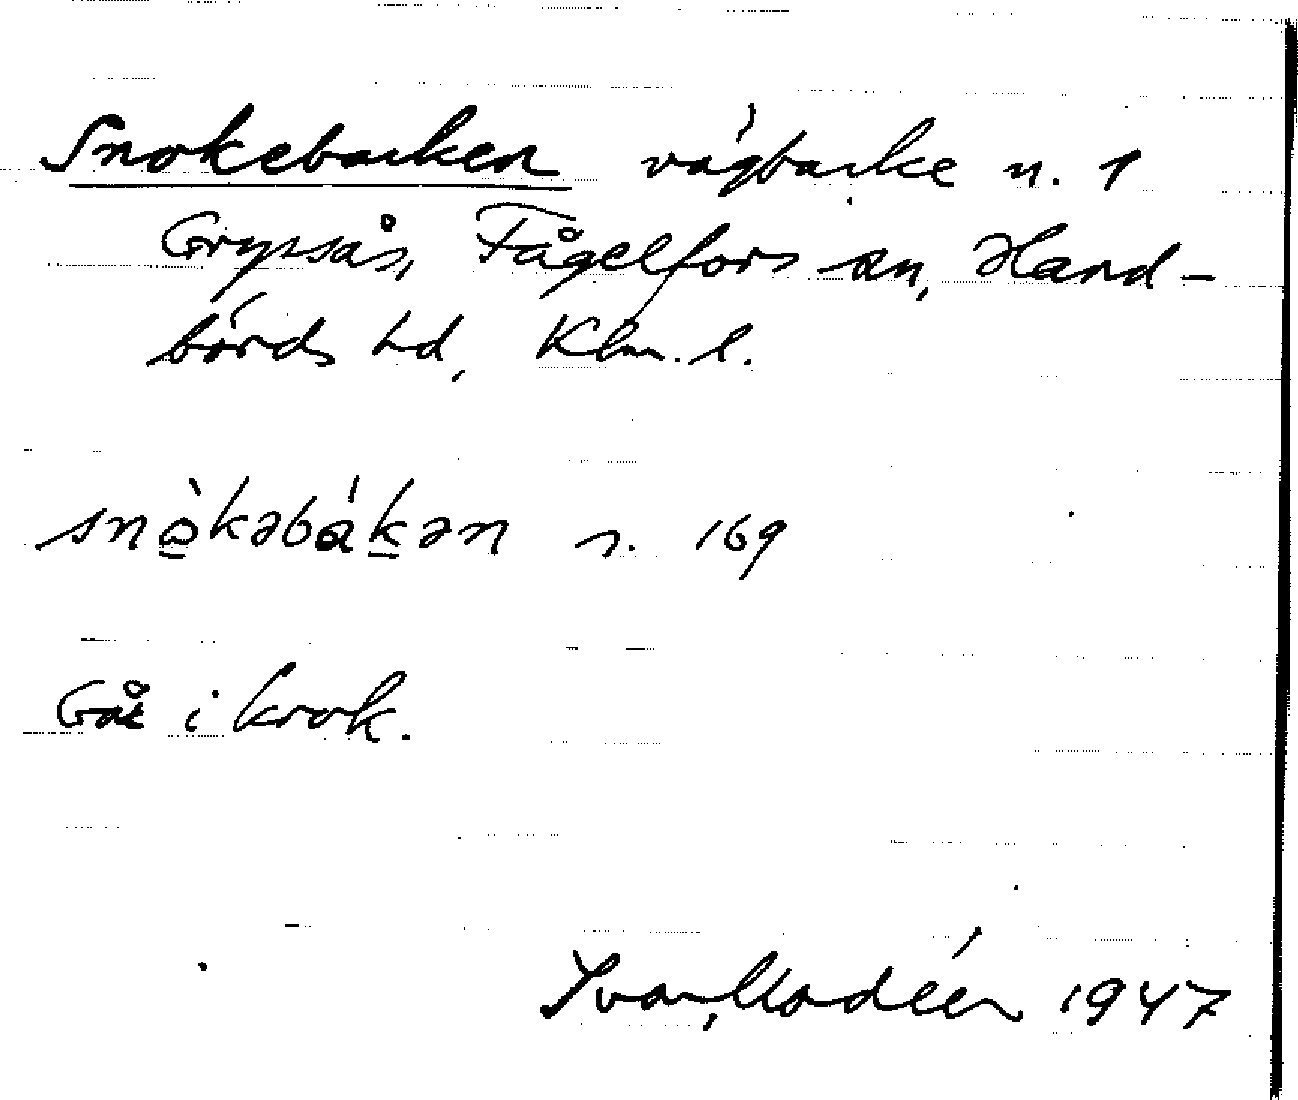 Snokebacken vägbacke n. 1
Grypsås, Fågelfors sn, Hand-
börds hd, Klm. l.
snò̱kəbáḵən s. 169
Går i krok.
Ivar Modéer 1947